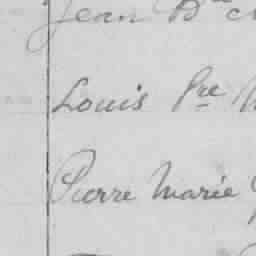 Jean Bte
Louis Pre
Pierre Marie